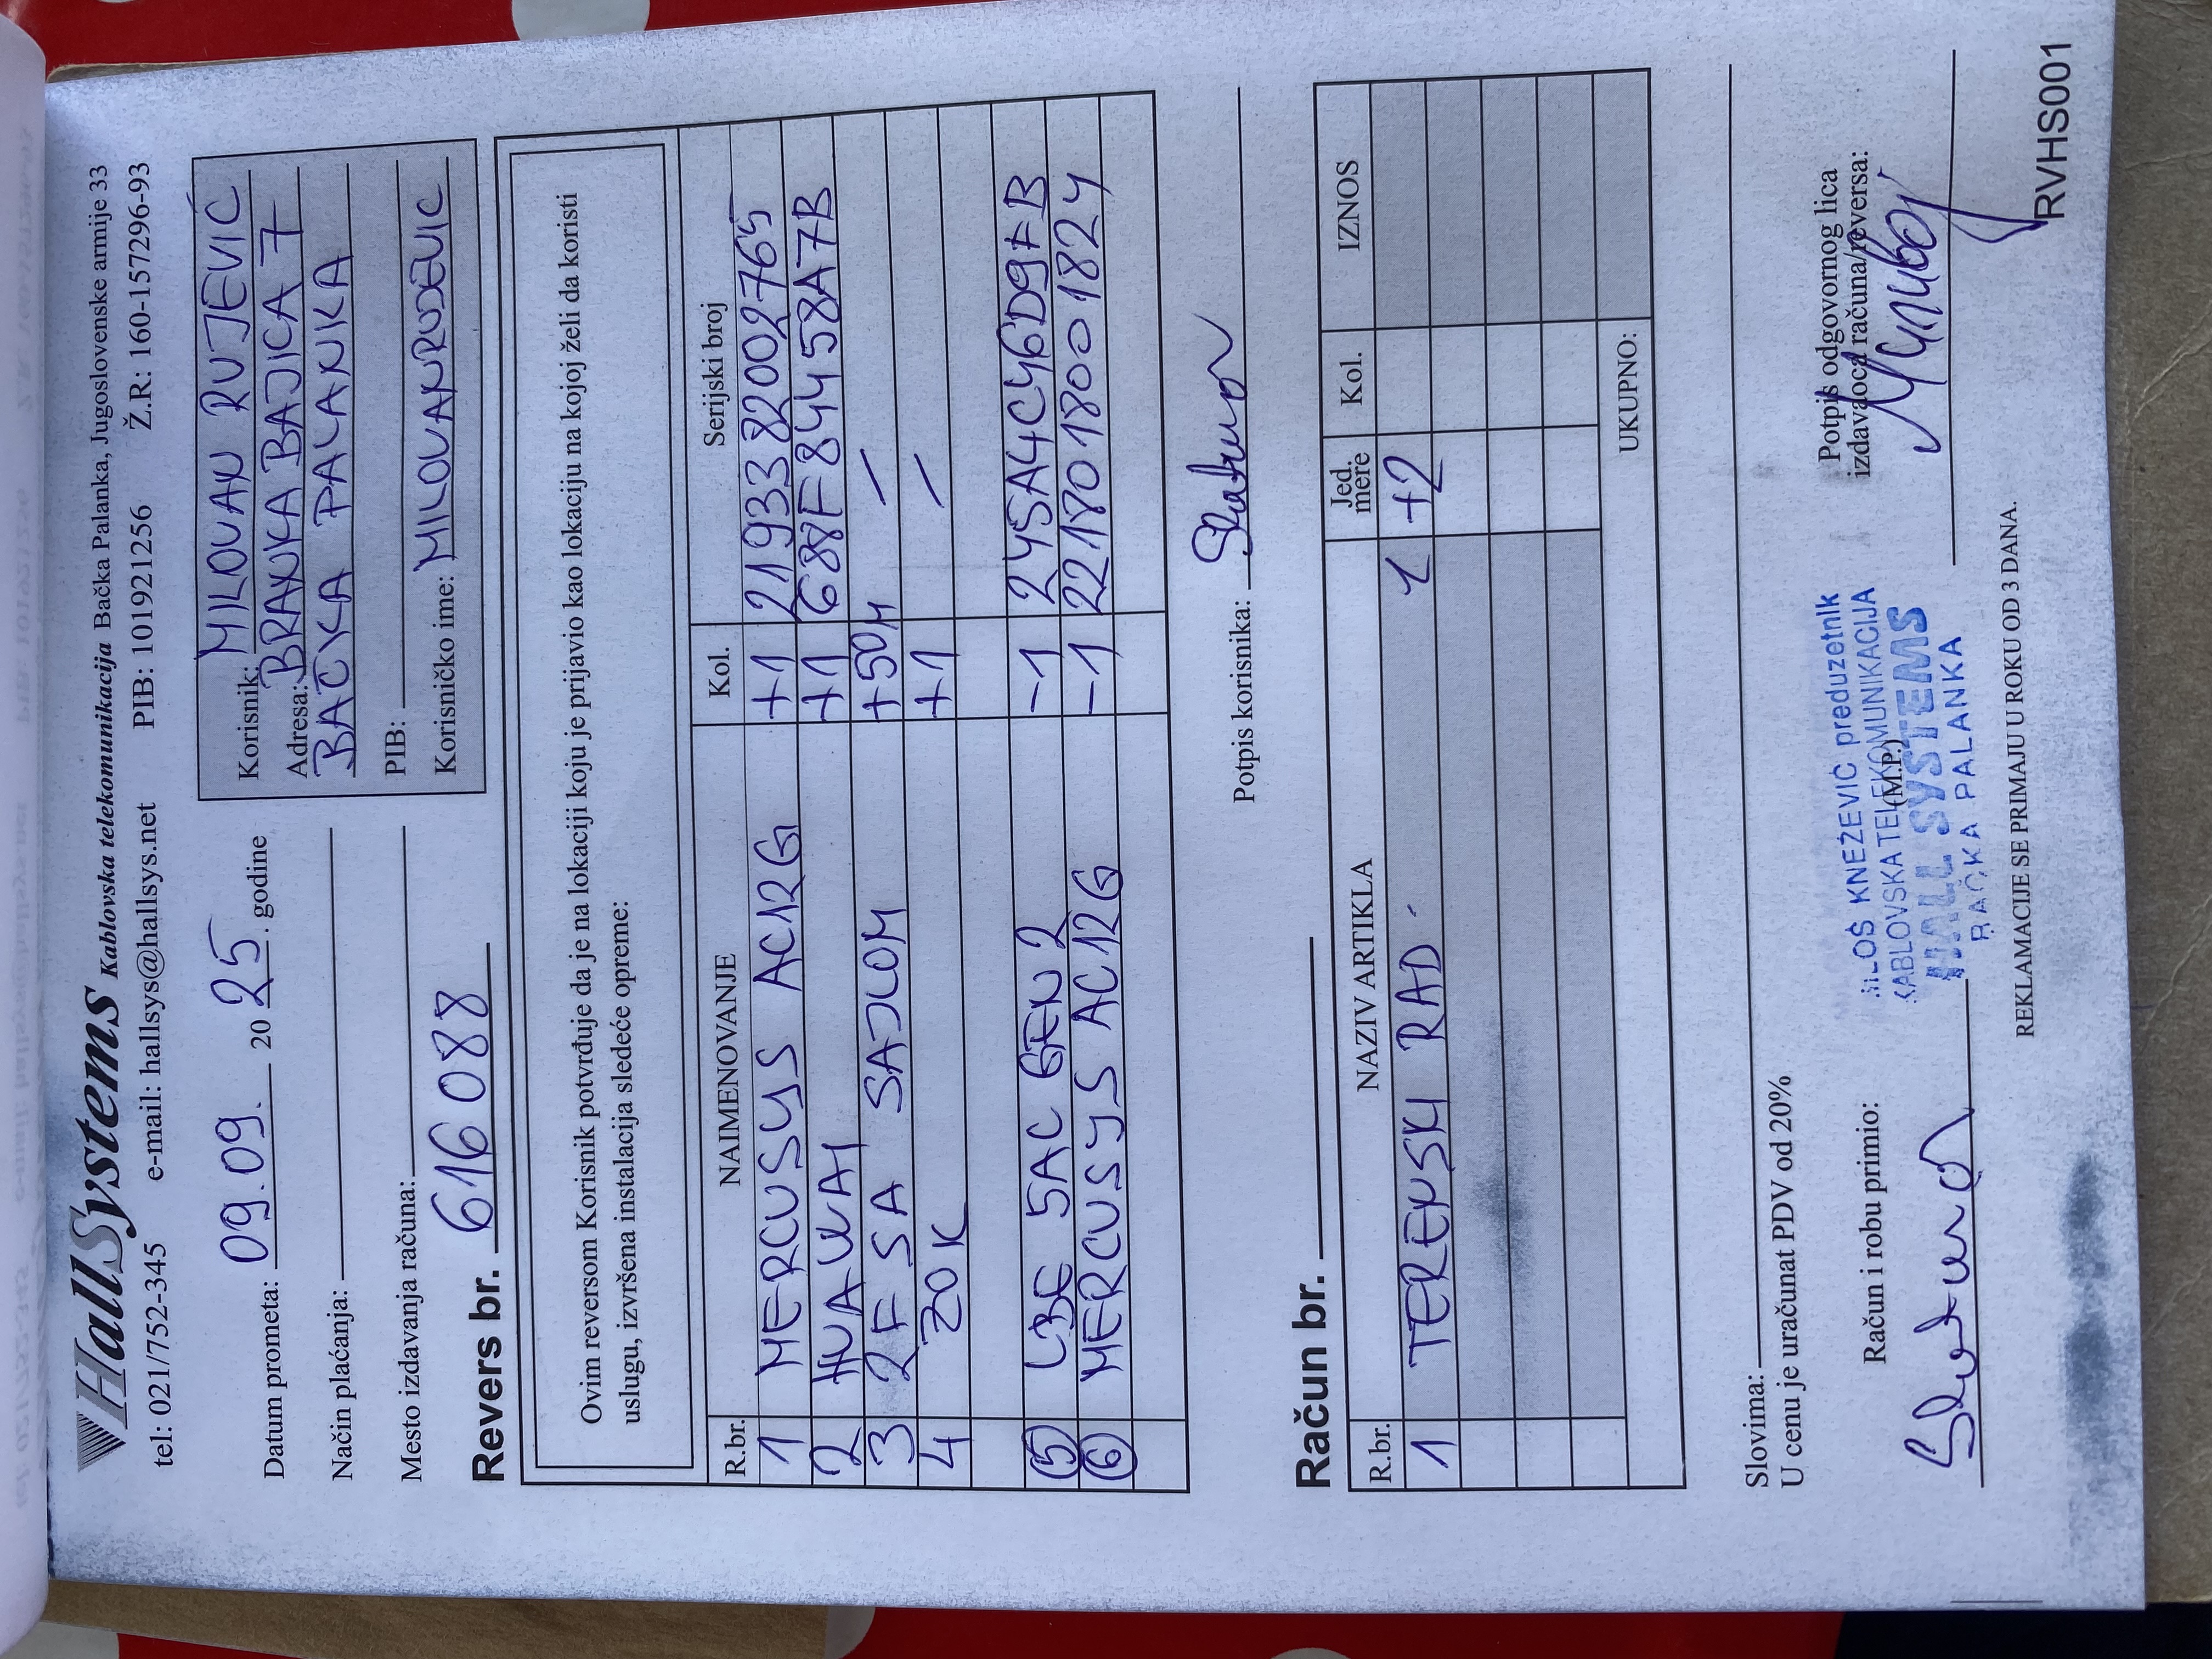 HallSystems Kablovska telekomunikacija Bačka Palanka, Jugoslovenske armije 33
tel: 021/752-345 e-mail: hallsys@hallsys.net PIB: 101921256 Ž.R: 160-157296-93
Datum prometa: 09.09. 20 25. godine
Način plaćanja:
Mesto izdavanja računa:
Korisnik: MILOVAN RUJEVIĆ
Adresa: BRANKA BAJICA 7
BAČKA PALANKA
PIB:
Korisničko ime: MILOVANRUJEVIC
Revers br. 616 088
Ovim reversom Korisnik potvrđuje da je na lokaciji koju je prijavio kao lokaciju na kojoj želi da koristi
uslugu, izvršena instalacija sledeće opreme:
R.br. NAIMENOVANJE Kol. Serijski broj
1 MERCUSYS AC12G +1 2193382002765
2 HUAWAI +1 688F84458A7B
3 2F SA SAJLOM +50M /
4 ZOK +1 /
5 LBE 5AC GEN 2 -1 245A4C46D9FB
6 MERCUSYS AC12G -1 22187018001824
Potpis korisnika:
Račun br.
R.br. NAZIV ARTIKLA Jed. mere Kol. IZNOS
1 TERENSKI RAD. 1 +2
UKUPNO:
Slovima:
U cenu je uračunat PDV od 20%
Račun i robu primio:
(M.P.)
MILOŠ KNEŽEVIĆ preduzetnik
KABLOVSKA TELEKOMUNIKACIJA
HALL SYSTEMS
BAČKA PALANKA
Potpis odgovornog lica
izdavaoca računa/reversa:
REKLAMACIJE SE PRIMAJU U ROKU OD 3 DANA.
RVHS001